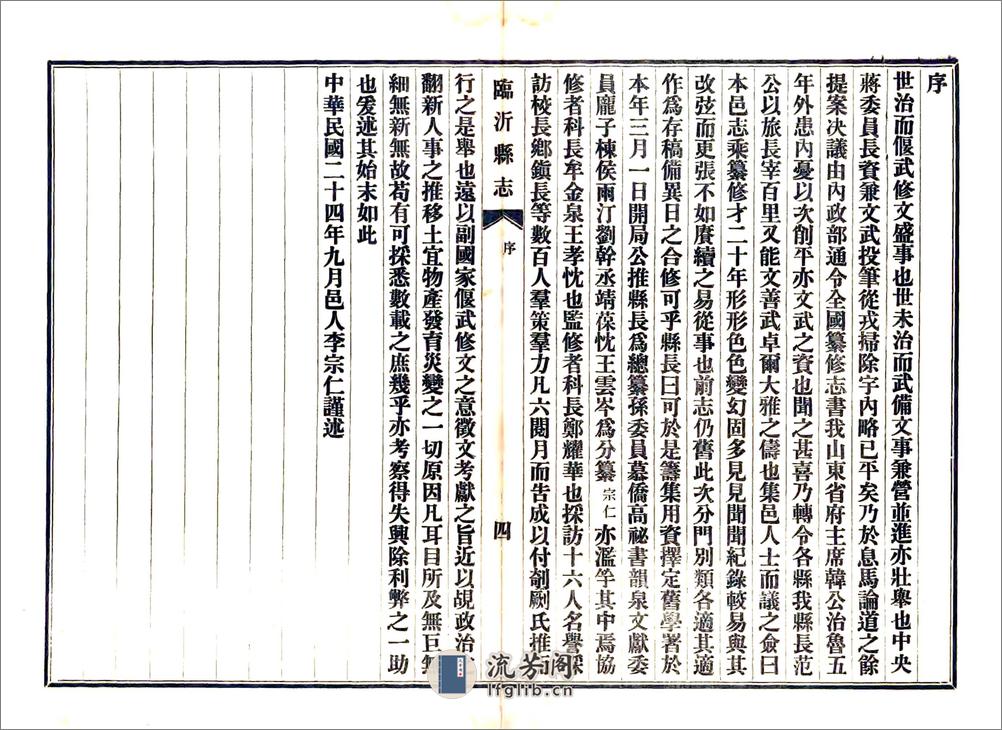 序
世治而偃武修文盛事也世未治而武備文事兼營並進亦壯舉也中央
蔣委員長資兼文武投筆從戎掃除宇內略已平矣乃於息馬論道之餘
提案決議由內政部通令全國纂修志書我山東省府主席韓公治魯五
年外患內憂以次削平亦文武之資也聞之甚喜乃轉令各縣我縣長范
公以旅長宰百里又能文善武卓爾大雅之儔也集邑人士而議之僉曰
本邑志乘纂修才二十年形形色色變幻固多見見聞聞紀錄較易與其
改弦而更張不如賡續之易從事也前志仍舊此次分門別類各適其適
作爲存稿備異日之合修可乎縣長曰可於是籌集用資擇定舊學署於
本年三月一日開局公推縣長爲總纂孫委員慕僑高祕書韻泉文獻委
員龐子棟侯雨汀劉幹丞靖葆忱王雲岑爲分纂宗仁亦濫竽其中焉協
修者科長牟金泉王孝忱也監修者科長鄭耀華也採訪十六人名譽採
訪校長鄉鎮長等數百人羣策羣力凡六閱月而告成以付剞劂氏推而
臨沂縣志
序
四
行之是舉也遠以副國家偃武修文之意徵文考獻之旨近以覘政治
翻新人事之推移土宜物產發育災變之一切原因凡耳目所及無巨無
細無新無故苟有可採悉數載之庶幾乎亦考察得失興除利弊之一助
也爰述其始末如此
中華民國二十四年九月邑人李宗仁謹述
流芳閣
lfglib.cn